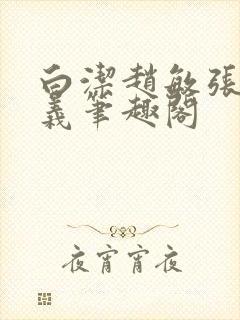 白潔趙敏張
義筆趣閣
夜宵宵夜